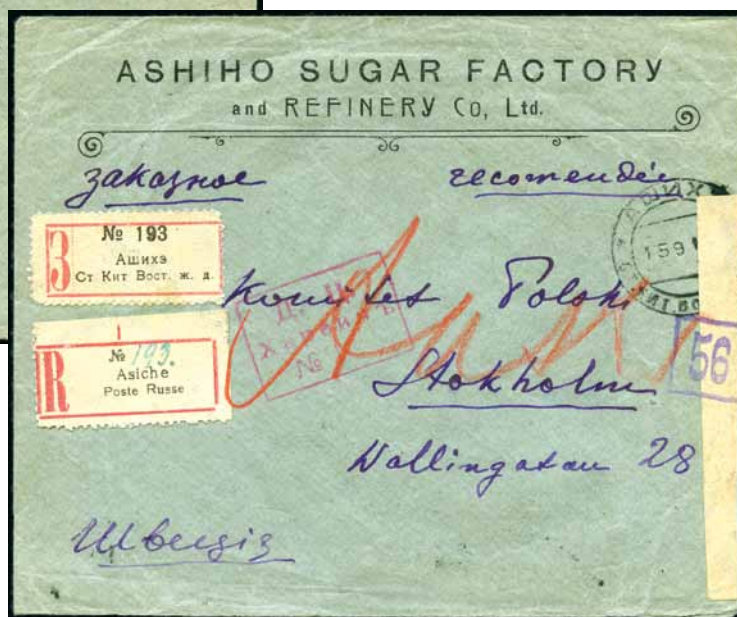 ASHIHO SUGAR FACTORY
and REFINERY Co, Ltd.
заказное recomendée
З № 193
Ашихэ
Ст Кит Вост. ж. д.
R № 193.
Asiche
Poste Russe
АШИХ
15 9 1
Komitet Polski
Stokholm
Wallingatan 28
56
Швеція